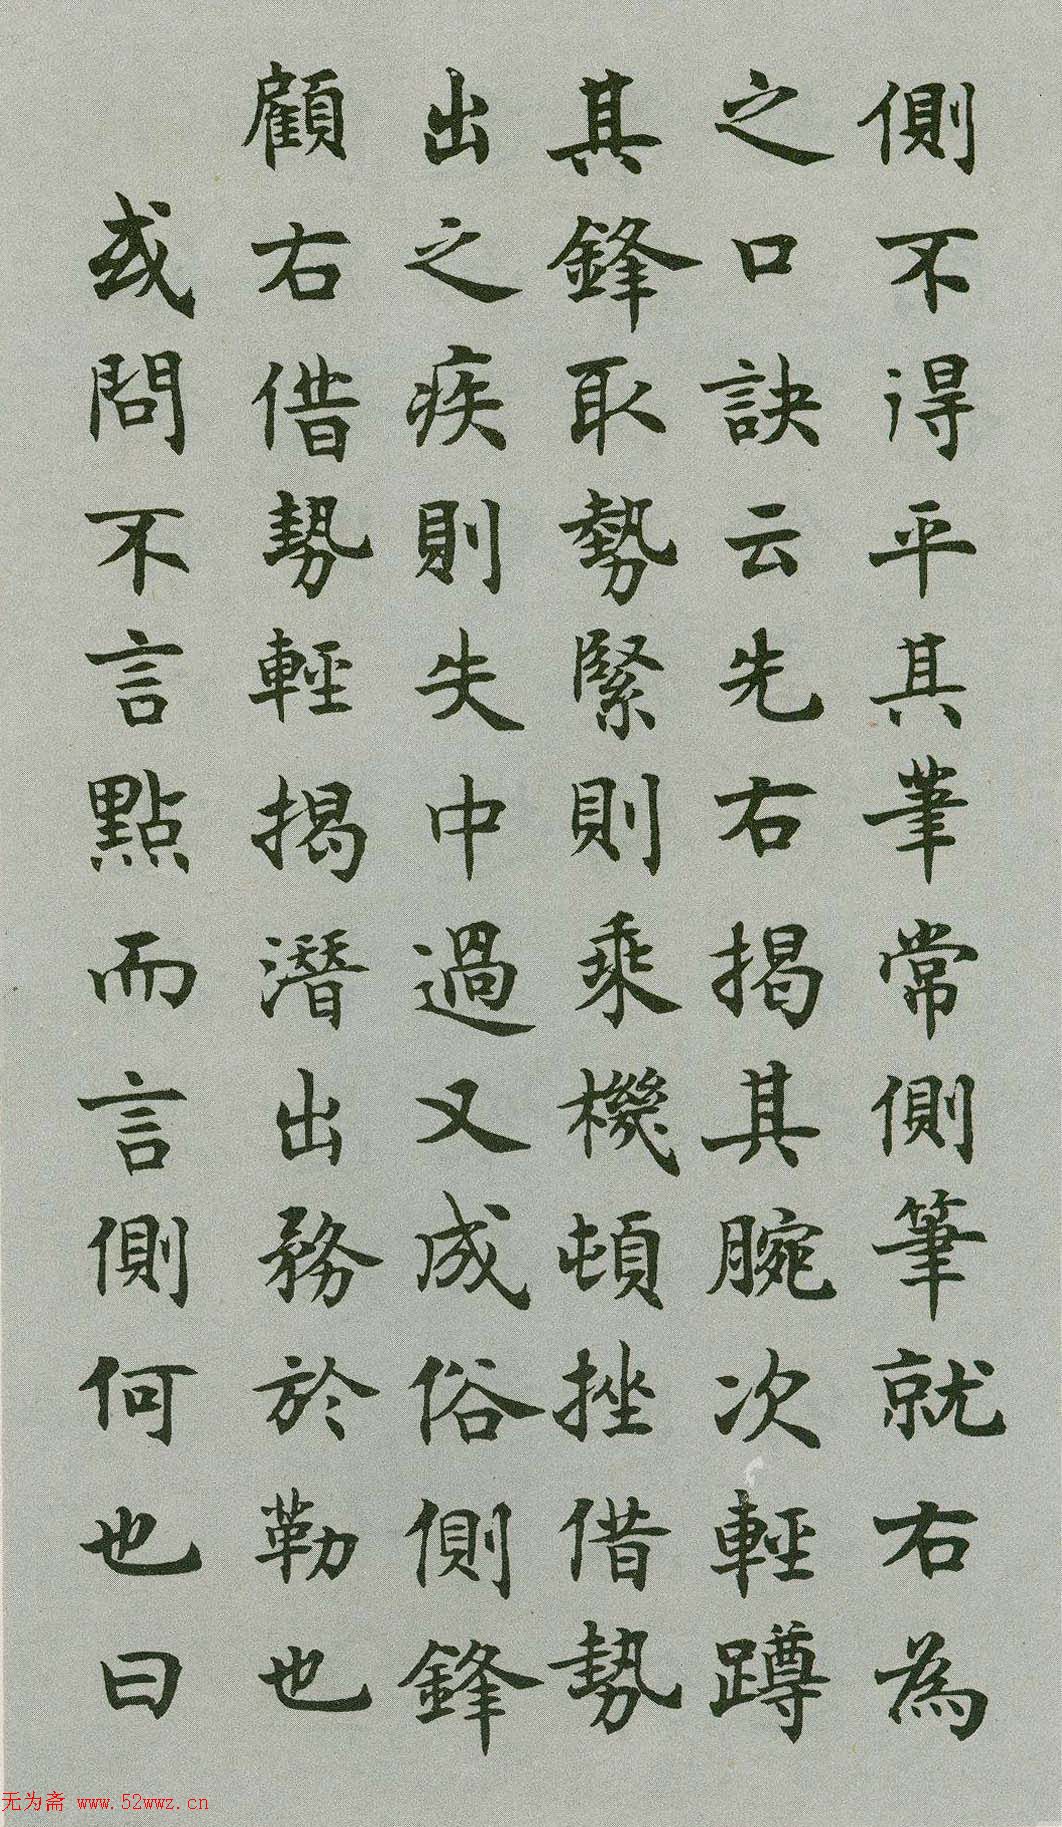 側不得平其筆常側筆就右為
之口訣云先右揭其腕次輕蹲
其鋒取勢緊則乘機頓挫借勢
出之疾則失中過又成俗側鋒
顧右借勢輕揭潛出務於勒也
或問不言點而言側何也曰
无为斋 www.52wwz.cn